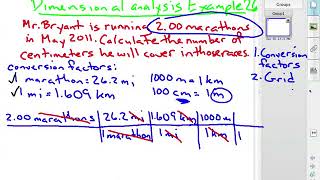 Dimensional analysis Example 26
Mr. Bryant is running 2.00 marathons
in May 2011. Calculate the number of
centimeters he will cover in those races.
conversion factors:
✓ 1 marathon = 26.2 mi 1000 m = 1 km
✓ 1 mi = 1.609 km 100 cm = 1 m
1. Conversion
factors
2. Grid
2.00 marathons | 26.2 mi | 1.609 km | 1000 m |
1 marathon | 1 mi | 1 km | 1
Groups